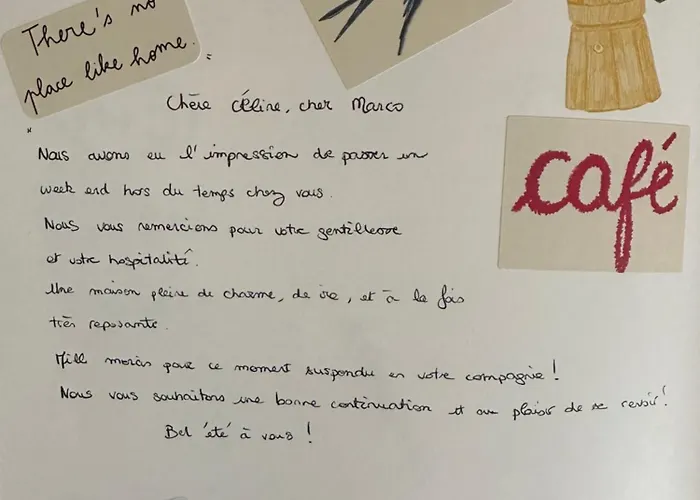 There's no
place like home.
café
Chère Céline, cher Marco
Nous avons eu l'impression de passer un
week end hors du temps chez vous.
Nous vous remercions pour votre gentillesse
et votre hospitalité.
Une maison pleine de charme, de vie, et à la fois
très reposante.
Mille mercis pour ce moment suspendu en votre compagnie !
Nous vous souhaitons une bonne continuation et au plaisir de se revoir !
Bel été à vous !